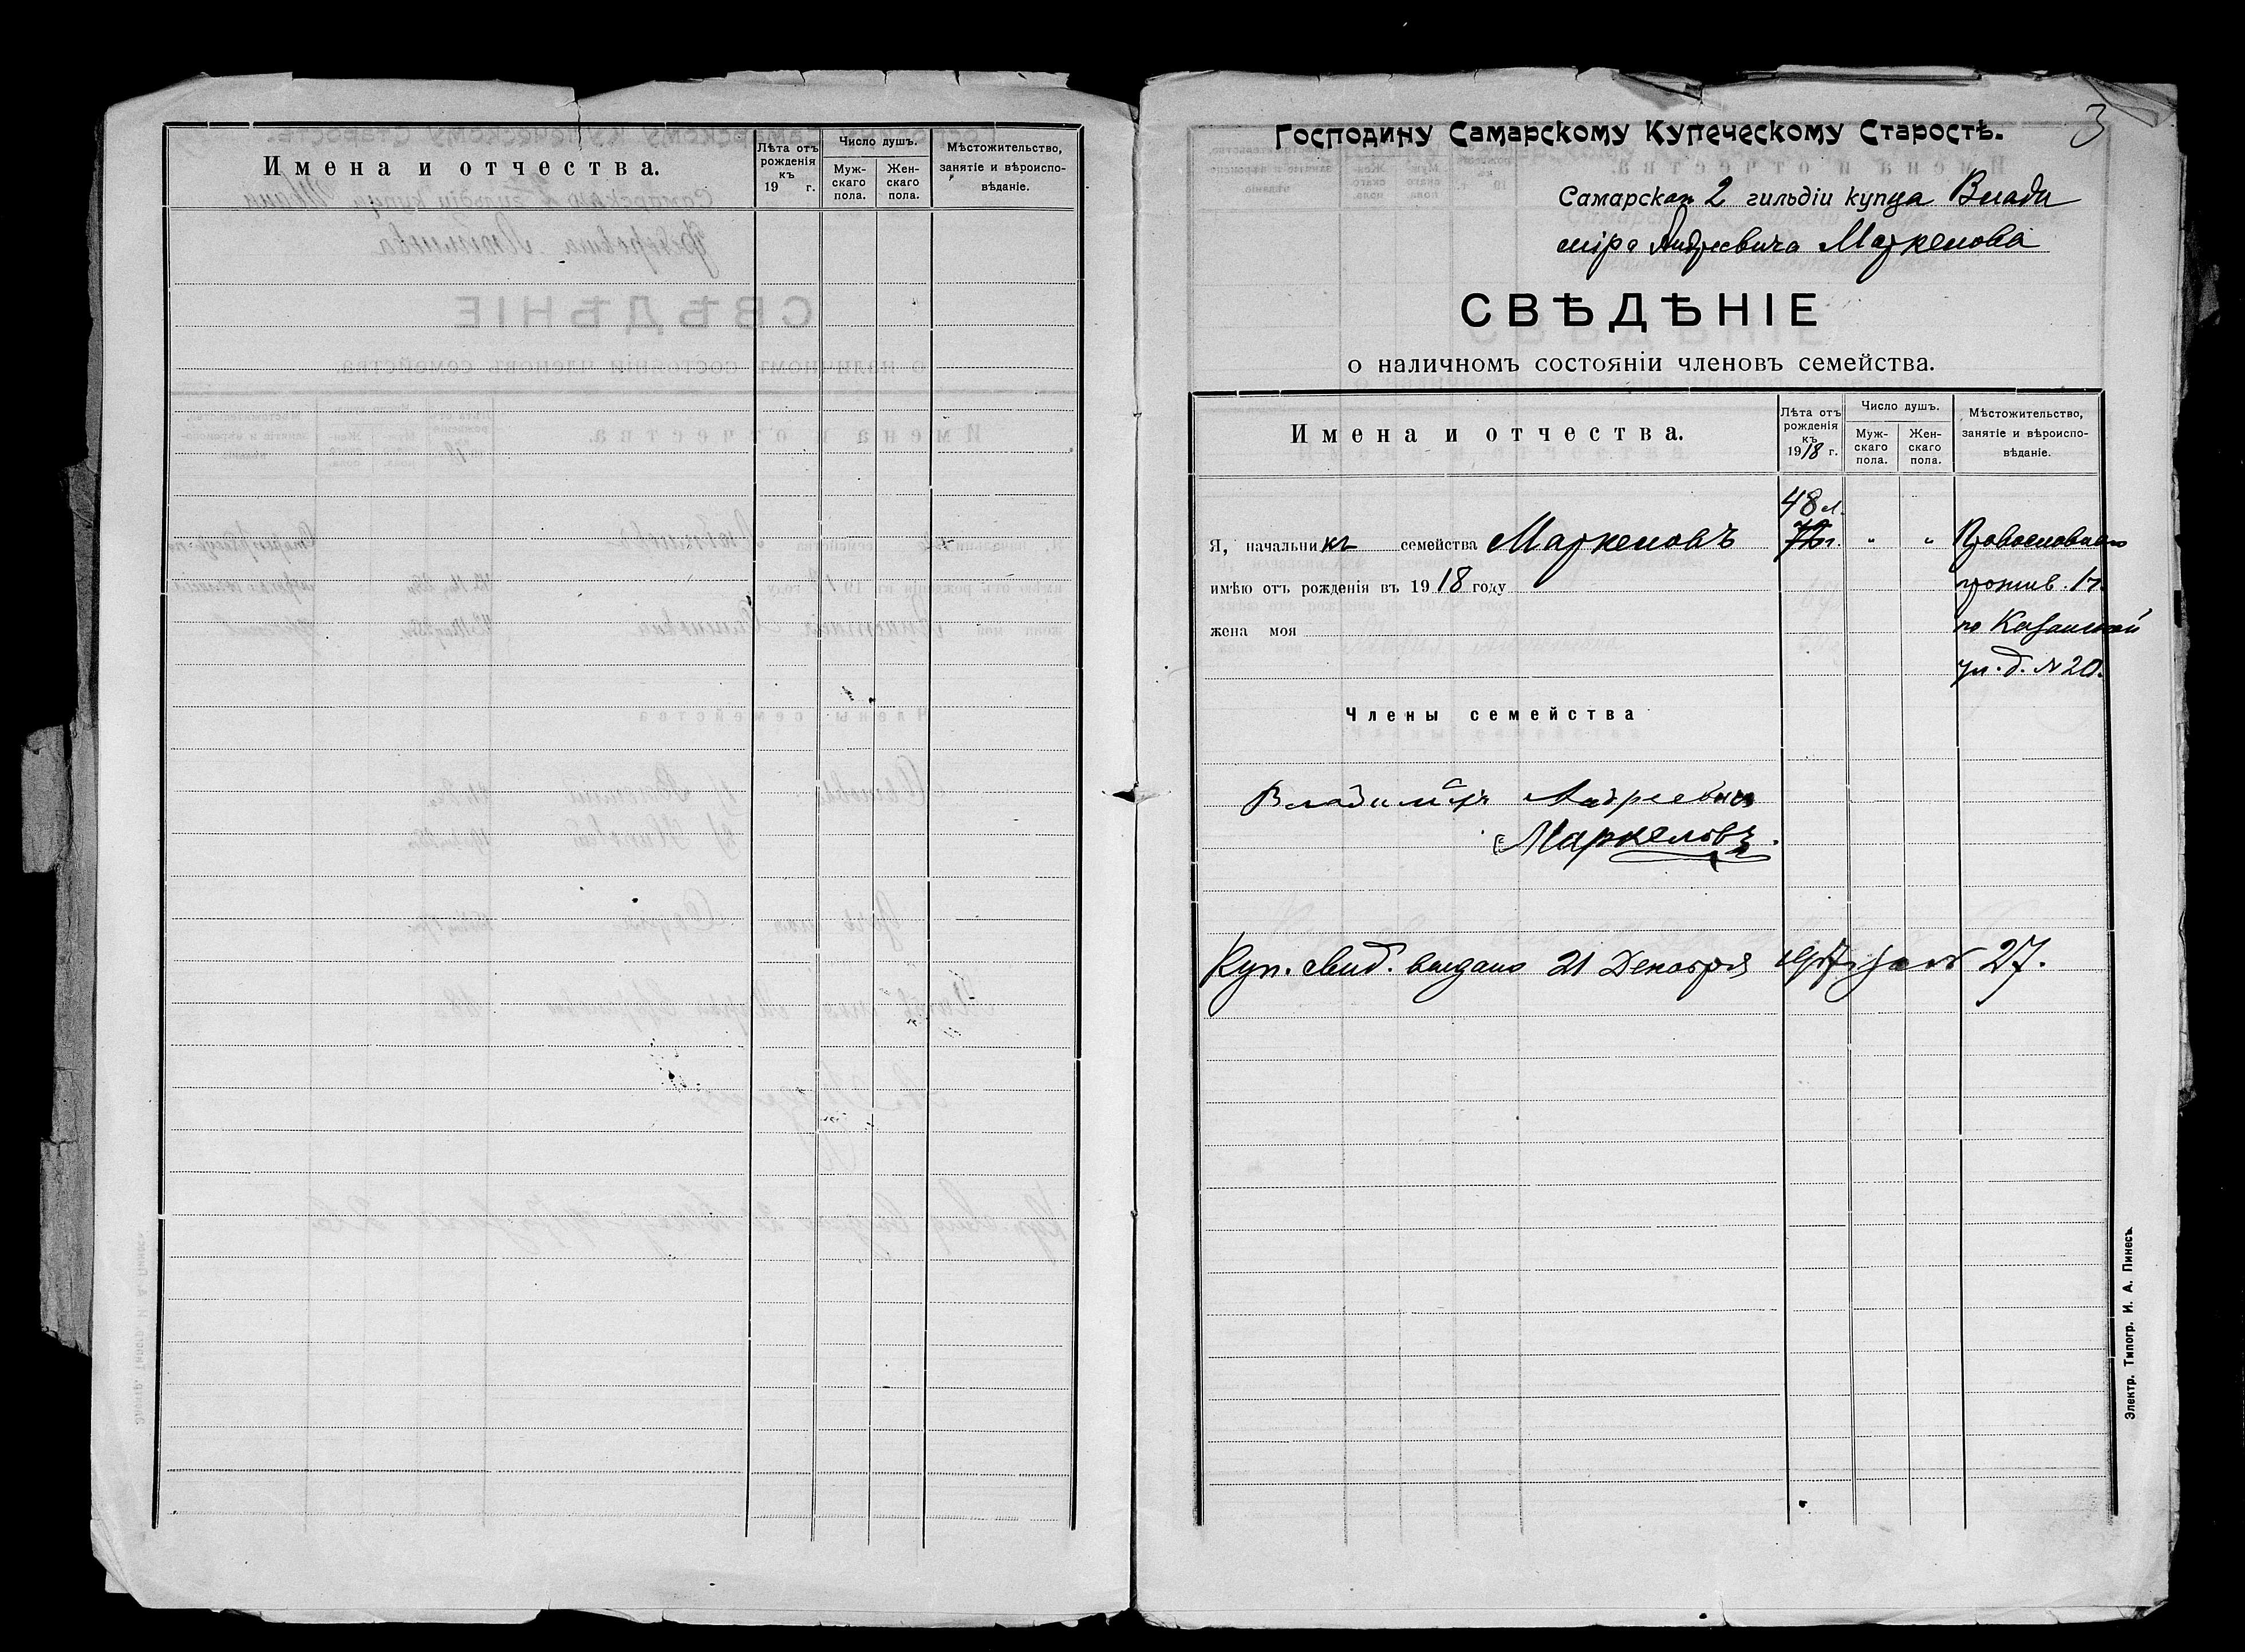 Имена и отчества.
Лѣта отъ рожденія къ 19 г.
Число душъ.
Муж-
скаго
пола.
Жен-
скаго
пола.
Мѣстожительство,
занятіе и вѣроиспо-
вѣданіе.
3
Господину Самарскому Купеческому Старостѣ.
Самарскаго 2 гильдіи купца Влади
міра Андреевича Маркелова
СВѢДѢНІЕ
о наличномъ состояніи членовъ семейства.
Имена и отчества.
Лѣта отъ
рожденія
къ
1918 г.
Число душъ.
Муж-
скаго
пола.
Жен-
скаго
пола.
Мѣстожительство,
занятіе и вѣроиспо-
вѣданіе.
48 л.
Я, начальникъ семейства Маркеловъ " " Православнаго
имѣю отъ рожденія въ 1918 году
жена моя по Казанской
ул. д. № 20.
Члены семейства
Владиміръ Андреевичъ
Маркеловъ.
Куп. свид. выдано 21 Декабря 1917 за № 27.
Электр. Типогр. И. А. Пинесъ